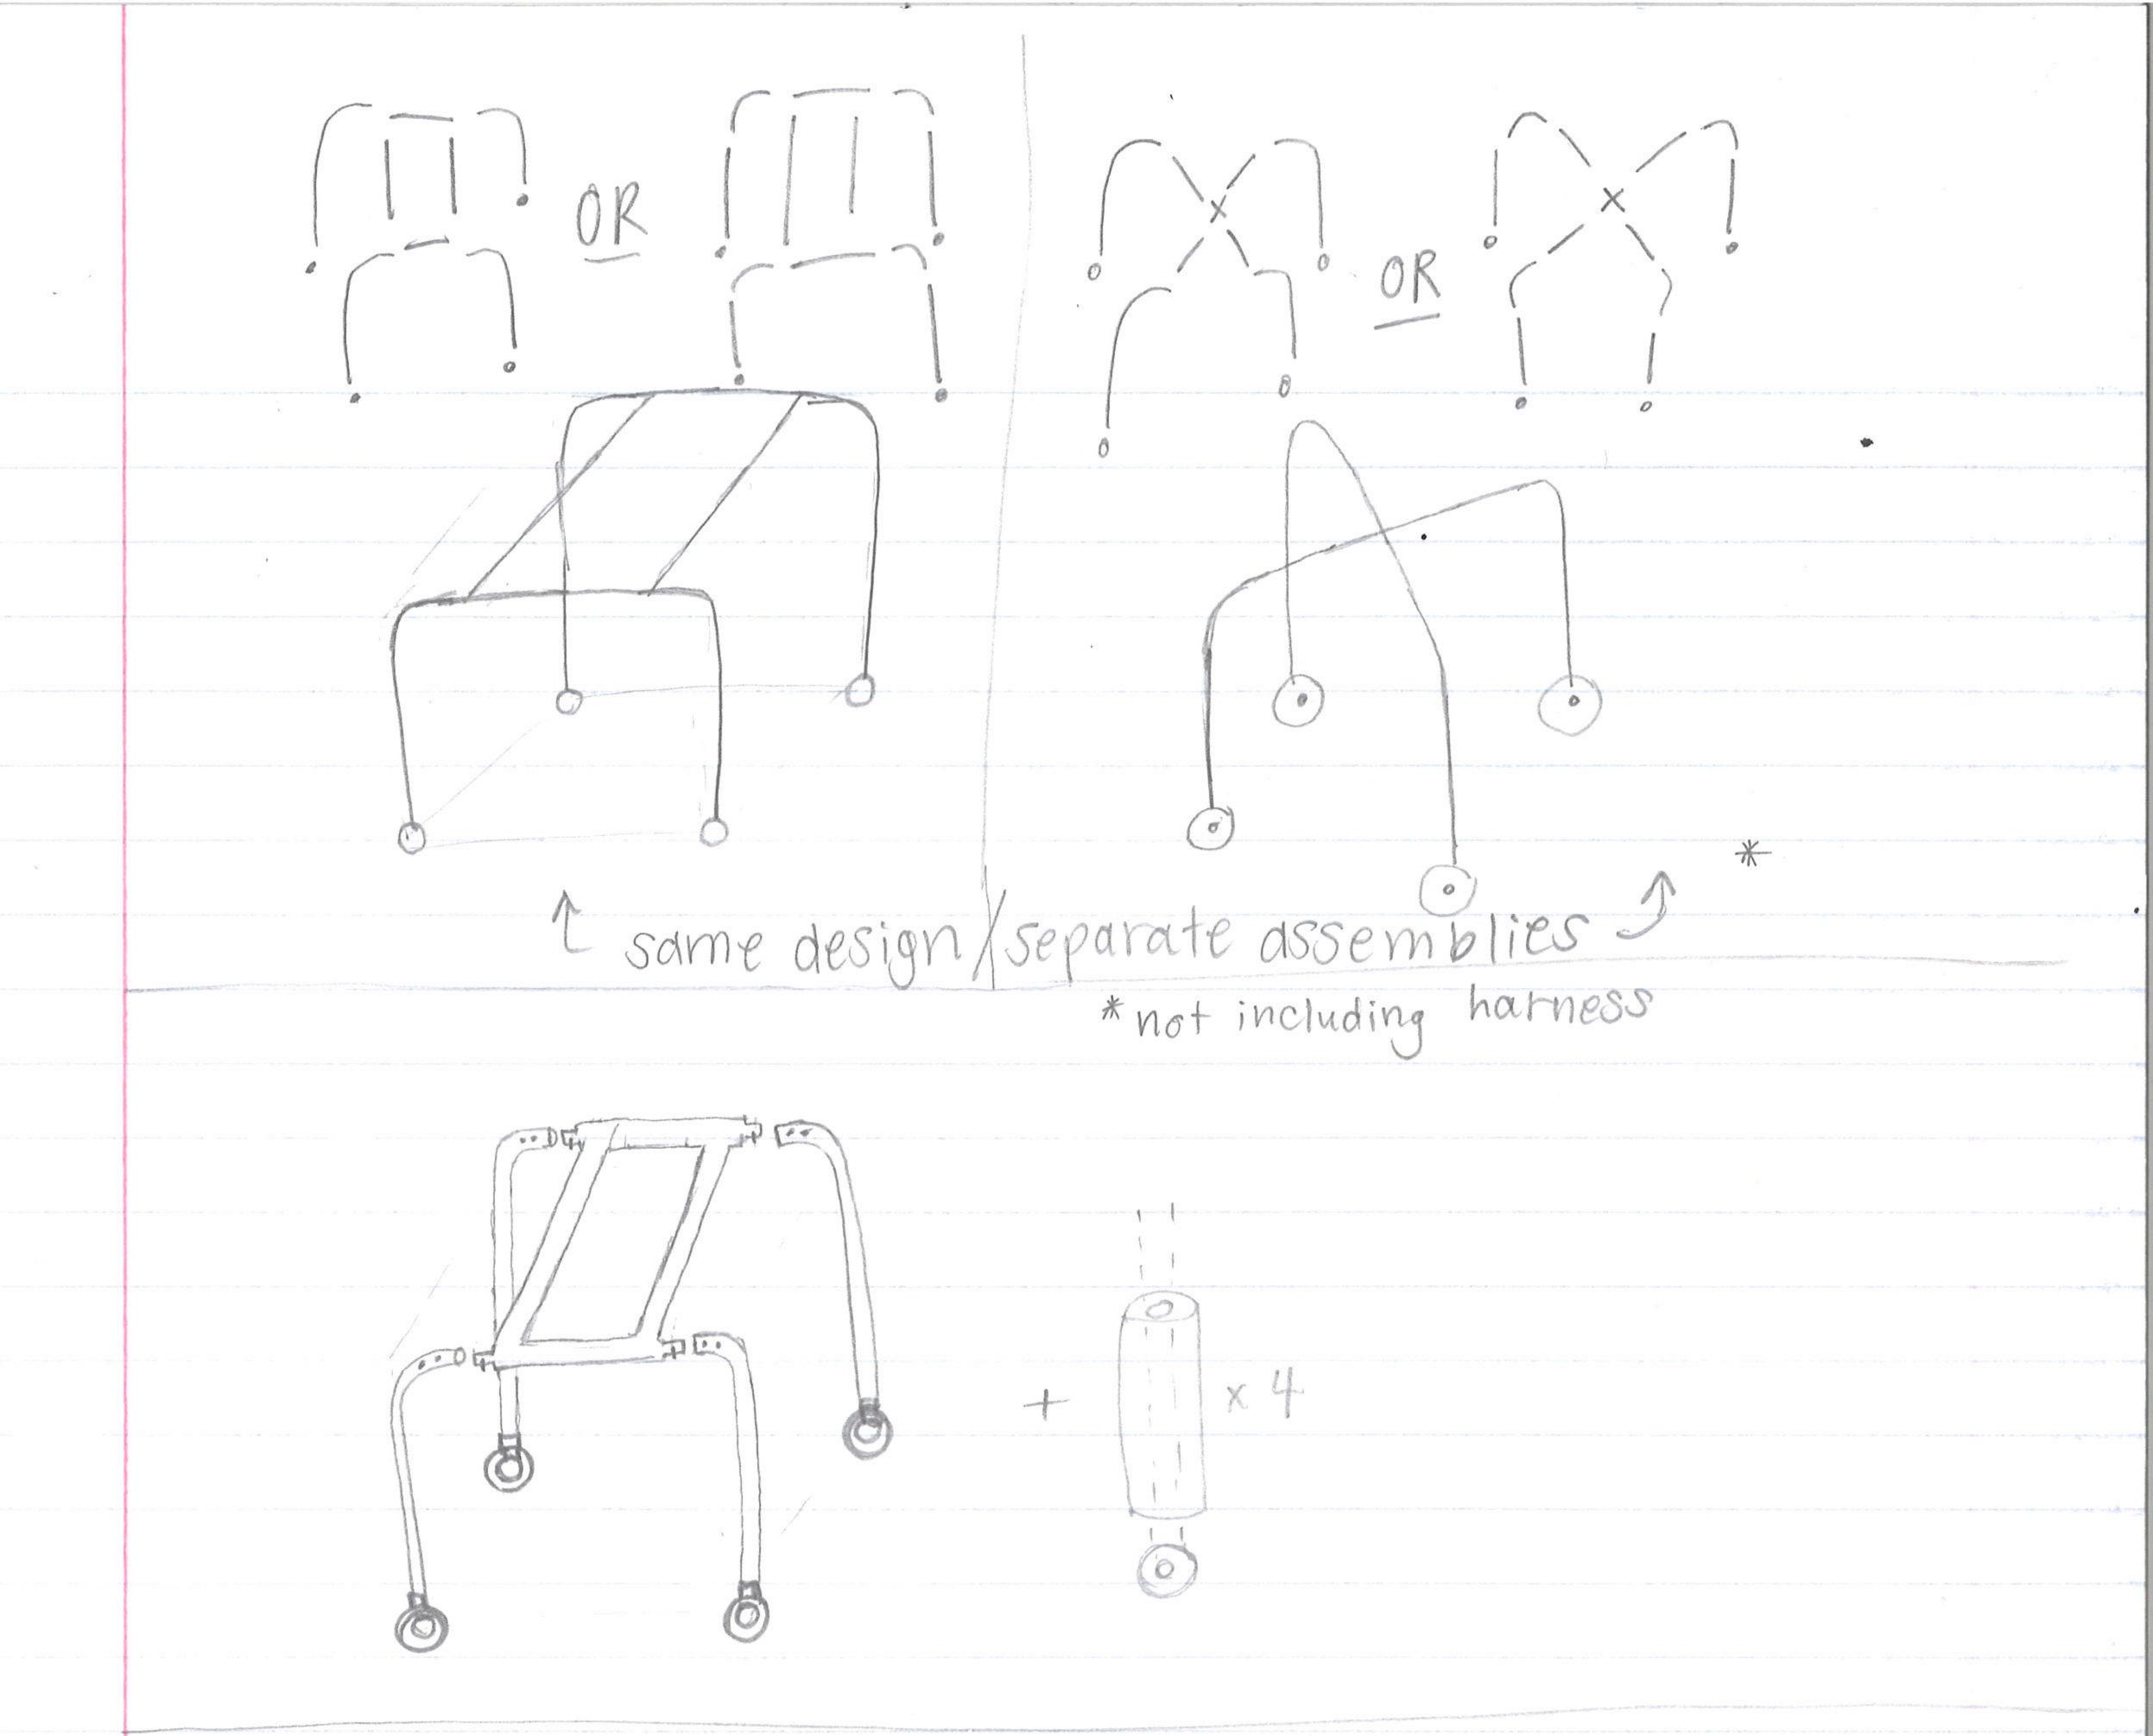 OR
OR
same design/separate assemblies *
*not including harness
+ x 4